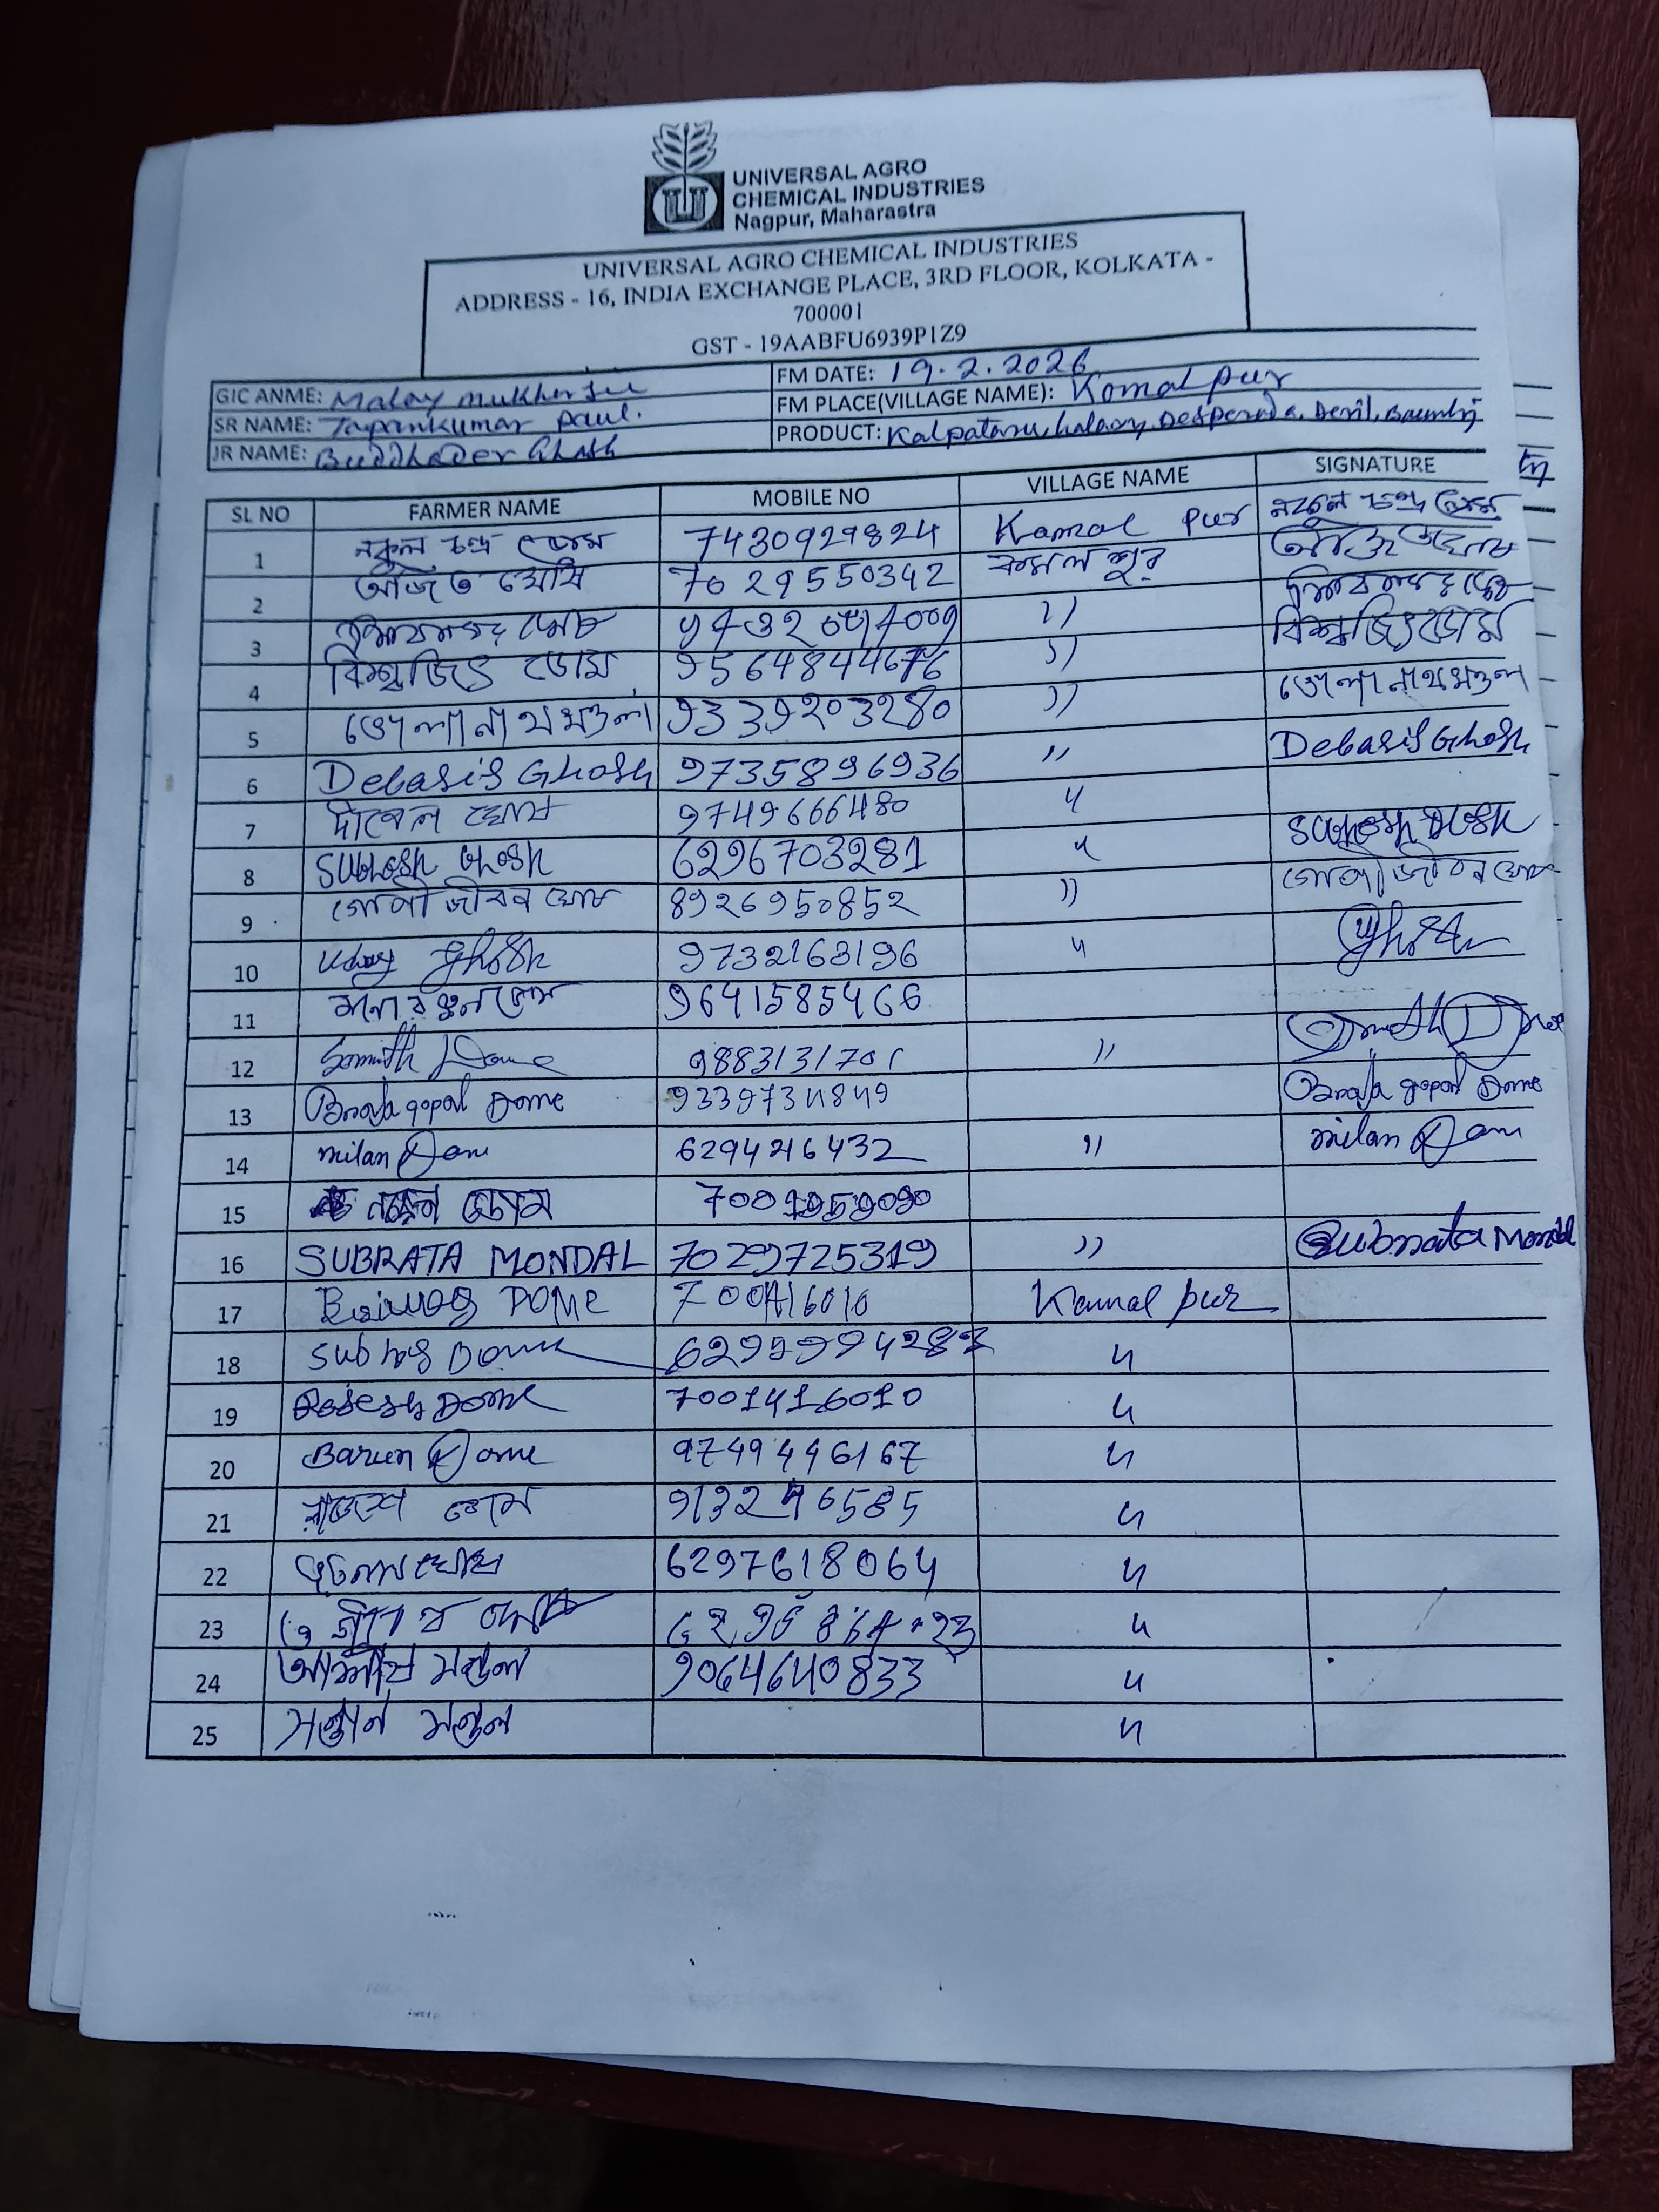 UNIVERSAL AGRO
CHEMICAL INDUSTRIES
Nagpur, Maharastra
UNIVERSAL AGRO CHEMICAL INDUSTRIES
ADDRESS - 16, INDIA EXCHANGE PLACE, 3RD FLOOR, KOLKATA -
700001
GST - 19AABFU6939P1Z9
GIC ANME: Malay mukherjee FM DATE: 19.2.2026
SR NAME: Tapankumar paul. FM PLACE(VILLAGE NAME): Komalpur
JR NAME: Buddhadev Ghosh PRODUCT: Kalpataru,
SL NO FARMER NAME MOBILE NO VILLAGE NAME SIGNATURE
1 নকুল চন্দ্র ডোম 7430929824 Kamal pur নকুল চন্দ্র ডোম
2 অজিত ঘোষ 7029550342 কমল পুর অজিত ঘোষ
3 "
4 বিশ্বজিৎ ডোম 9564844676 " বিশ্বজিৎ ডোম
5 ভোলানাথ মণ্ডল 9339203280 " ভোলানাথ মণ্ডল
6 Debasis Ghosh 9735896936 " Debasis Ghosh
7 ঘোষ 9749666480 "
8 Subhosh Ghosh 6296703281 " Subhosh Ghosh
9 গোপী জীবন ঘোষ 8926950852 " গোপী জীবন ঘোষ
10 Uday Ghosh 9732163196 " Ghosh
11 মনোরঞ্জন ডোম 9641585466
12 Dome 9883131701 "
13 Braja gopal Dome 9339734849 Braja gopal Dome
14 milan Dom 6294216432 " milan Dom
15 ডোম
16 SUBRATA MONDAL 7029725319 " Subrata Mondal
17 DOME Kamal pur
18 Dome "
19 Dome 7001416010 "
20 Barun Dome 9749446167 "
21 রাজেশ ডোম "
22 ঘোষ 6297618064 "
23 "
24 আশীষ মণ্ডল 9064640833 "
25 মণ্ডল "